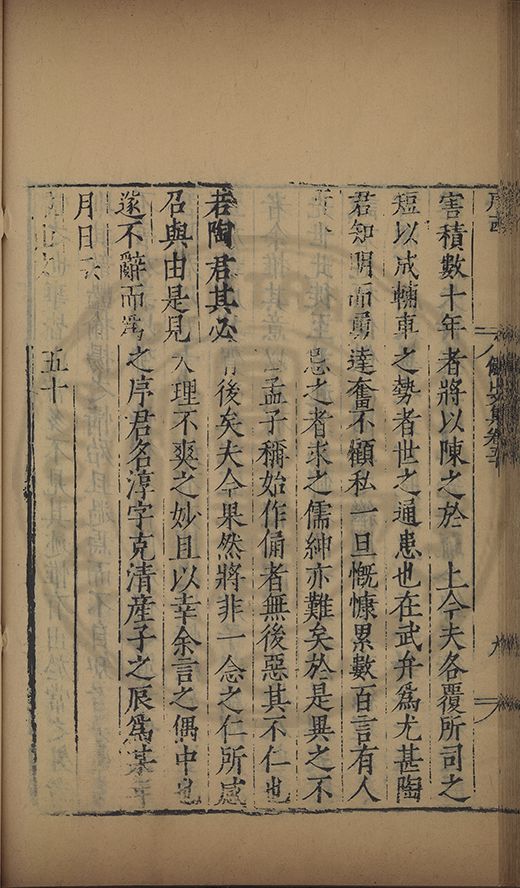 害積數十年者將以陳之於　上今夫各覆所司之
短以成輔車之勢者世之通患也在武弁爲尤甚陶
君知明而勇達奮不顧私一旦慨慷累數百言有人
忌之者求之儒紳亦難矣於是異之不
孟子稱始作俑者無後惡其不仁也
若陶君其必有後矣夫今果然將非一念之仁所感
召與由是見天理不爽之妙且以幸余言之偶中也
遂不辭而爲之序君名淳字克清產子之辰爲某年
月日云
五十